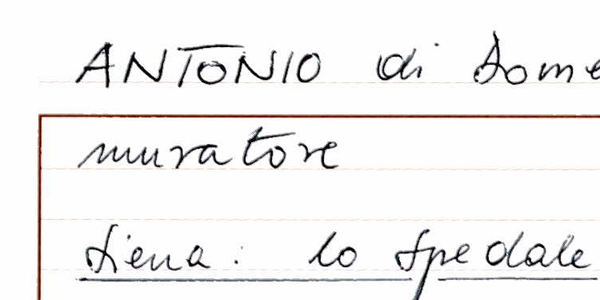 ANTONIO di Dome
muratore
Siena: lo Spedale